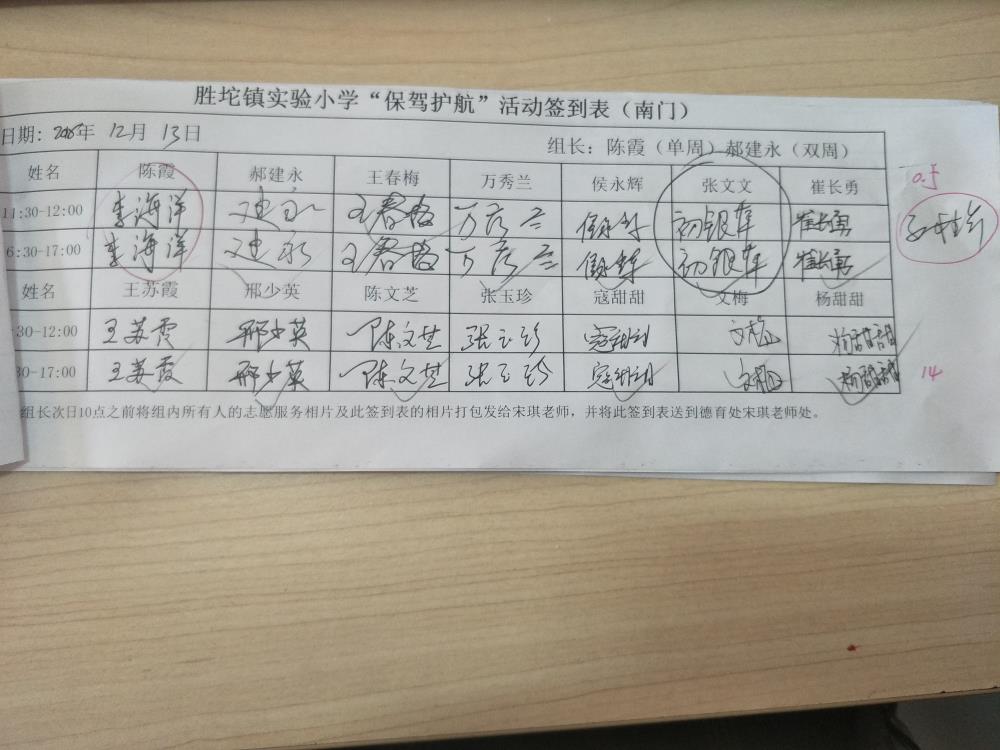 胜坨镇实验小学“保驾护航”活动签到表（南门）
日期: 年 12月 13日 组长：陈霞（单周）郝建永（双周）
姓名 陈霞 郝建永 王春梅 万秀兰 侯永辉 张文文 崔长勇 0.5
11:30-12:00 李海洋 建永 王春梅 万秀兰 侯永辉 初银萍 崔长勇
6:30-17:00 李海洋 建永 王春梅 万秀兰 侯永辉 初银萍 崔长勇
姓名 王苏霞 邢少英 陈文芝 张玉珍 寇甜甜 文梅 杨甜甜
:30-12:00 王苏霞 邢少英 陈文芝 张玉珍 寇甜甜 文梅 杨甜甜
30-17:00 王苏霞 邢少英 陈文芝 张玉珍 寇甜甜 文梅 杨甜甜 14
组长次日10点之前将组内所有人的志愿服务相片及此签到表的相片打包发给宋琪老师，并将此签到表送到德育处宋琪老师处。